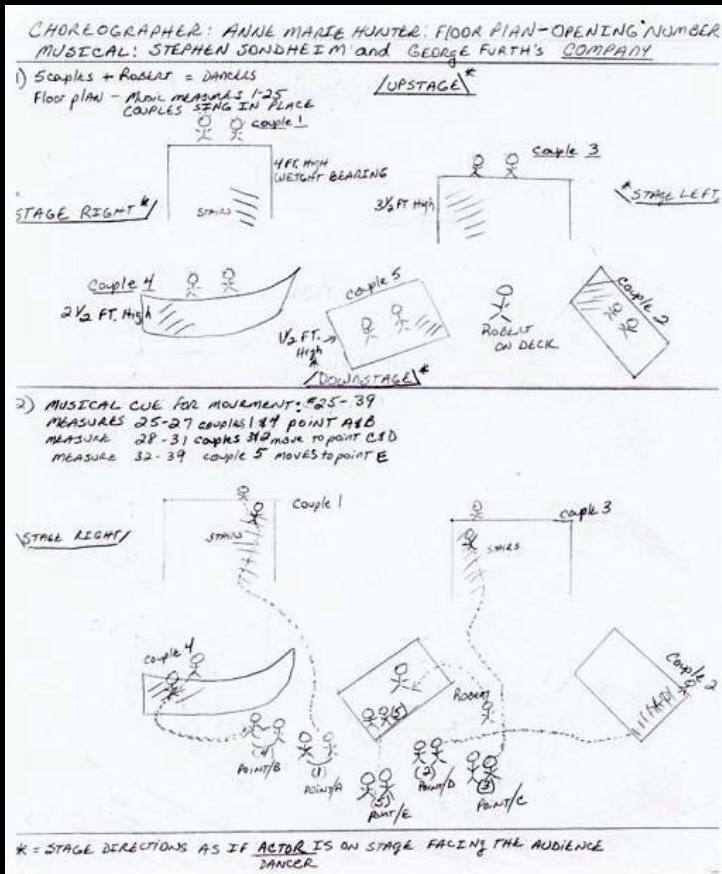 CHOREOGRAPHER: ANNE MARIE HUNTER: FLOOR PLAN-OPENING NUMBER
MUSICAL: STEPHEN SONDHEIM and GEORGE FURTH'S COMPANY
1) 5 couples + ROBERT = DANCERS
Floor plan - Music measures 1-25
COUPLES SING IN PLACE
/UPSTAGE\*
couple 1
4 FT. HIGH
WEIGHT BEARING
STAIRS
couple 3
3½ FT High
STAGE RIGHT*/
*\STAGE LEFT
Couple 4
2 1/2 FT. High
couple 5
1½ FT.
High
ROBERT
ON DECK
couple 2
/DOWNSTAGE\*
2) MUSICAL CUE FOR MOVEMENT: #25-39
MEASURES 25-27 couples 1 & 4 POINT A&B
MEASURE 28-31 couples 3&2 move to point C&D
MEASURE 32-39 couple 5 moves to point E
Couple 1
STAIRS
couple 3
STAIRS
\STAGE RIGHT/
couple 4
couple 2
Robert
(5)
(4)
POINT/B
(1)
POINT/A
(5)
POINT/E
(2)
POINT/D
(3)
POINT/C
* = STAGE DIRECTIONS AS IF ACTOR IS ON STAGE FACING THE AUDIENCE
DANCER